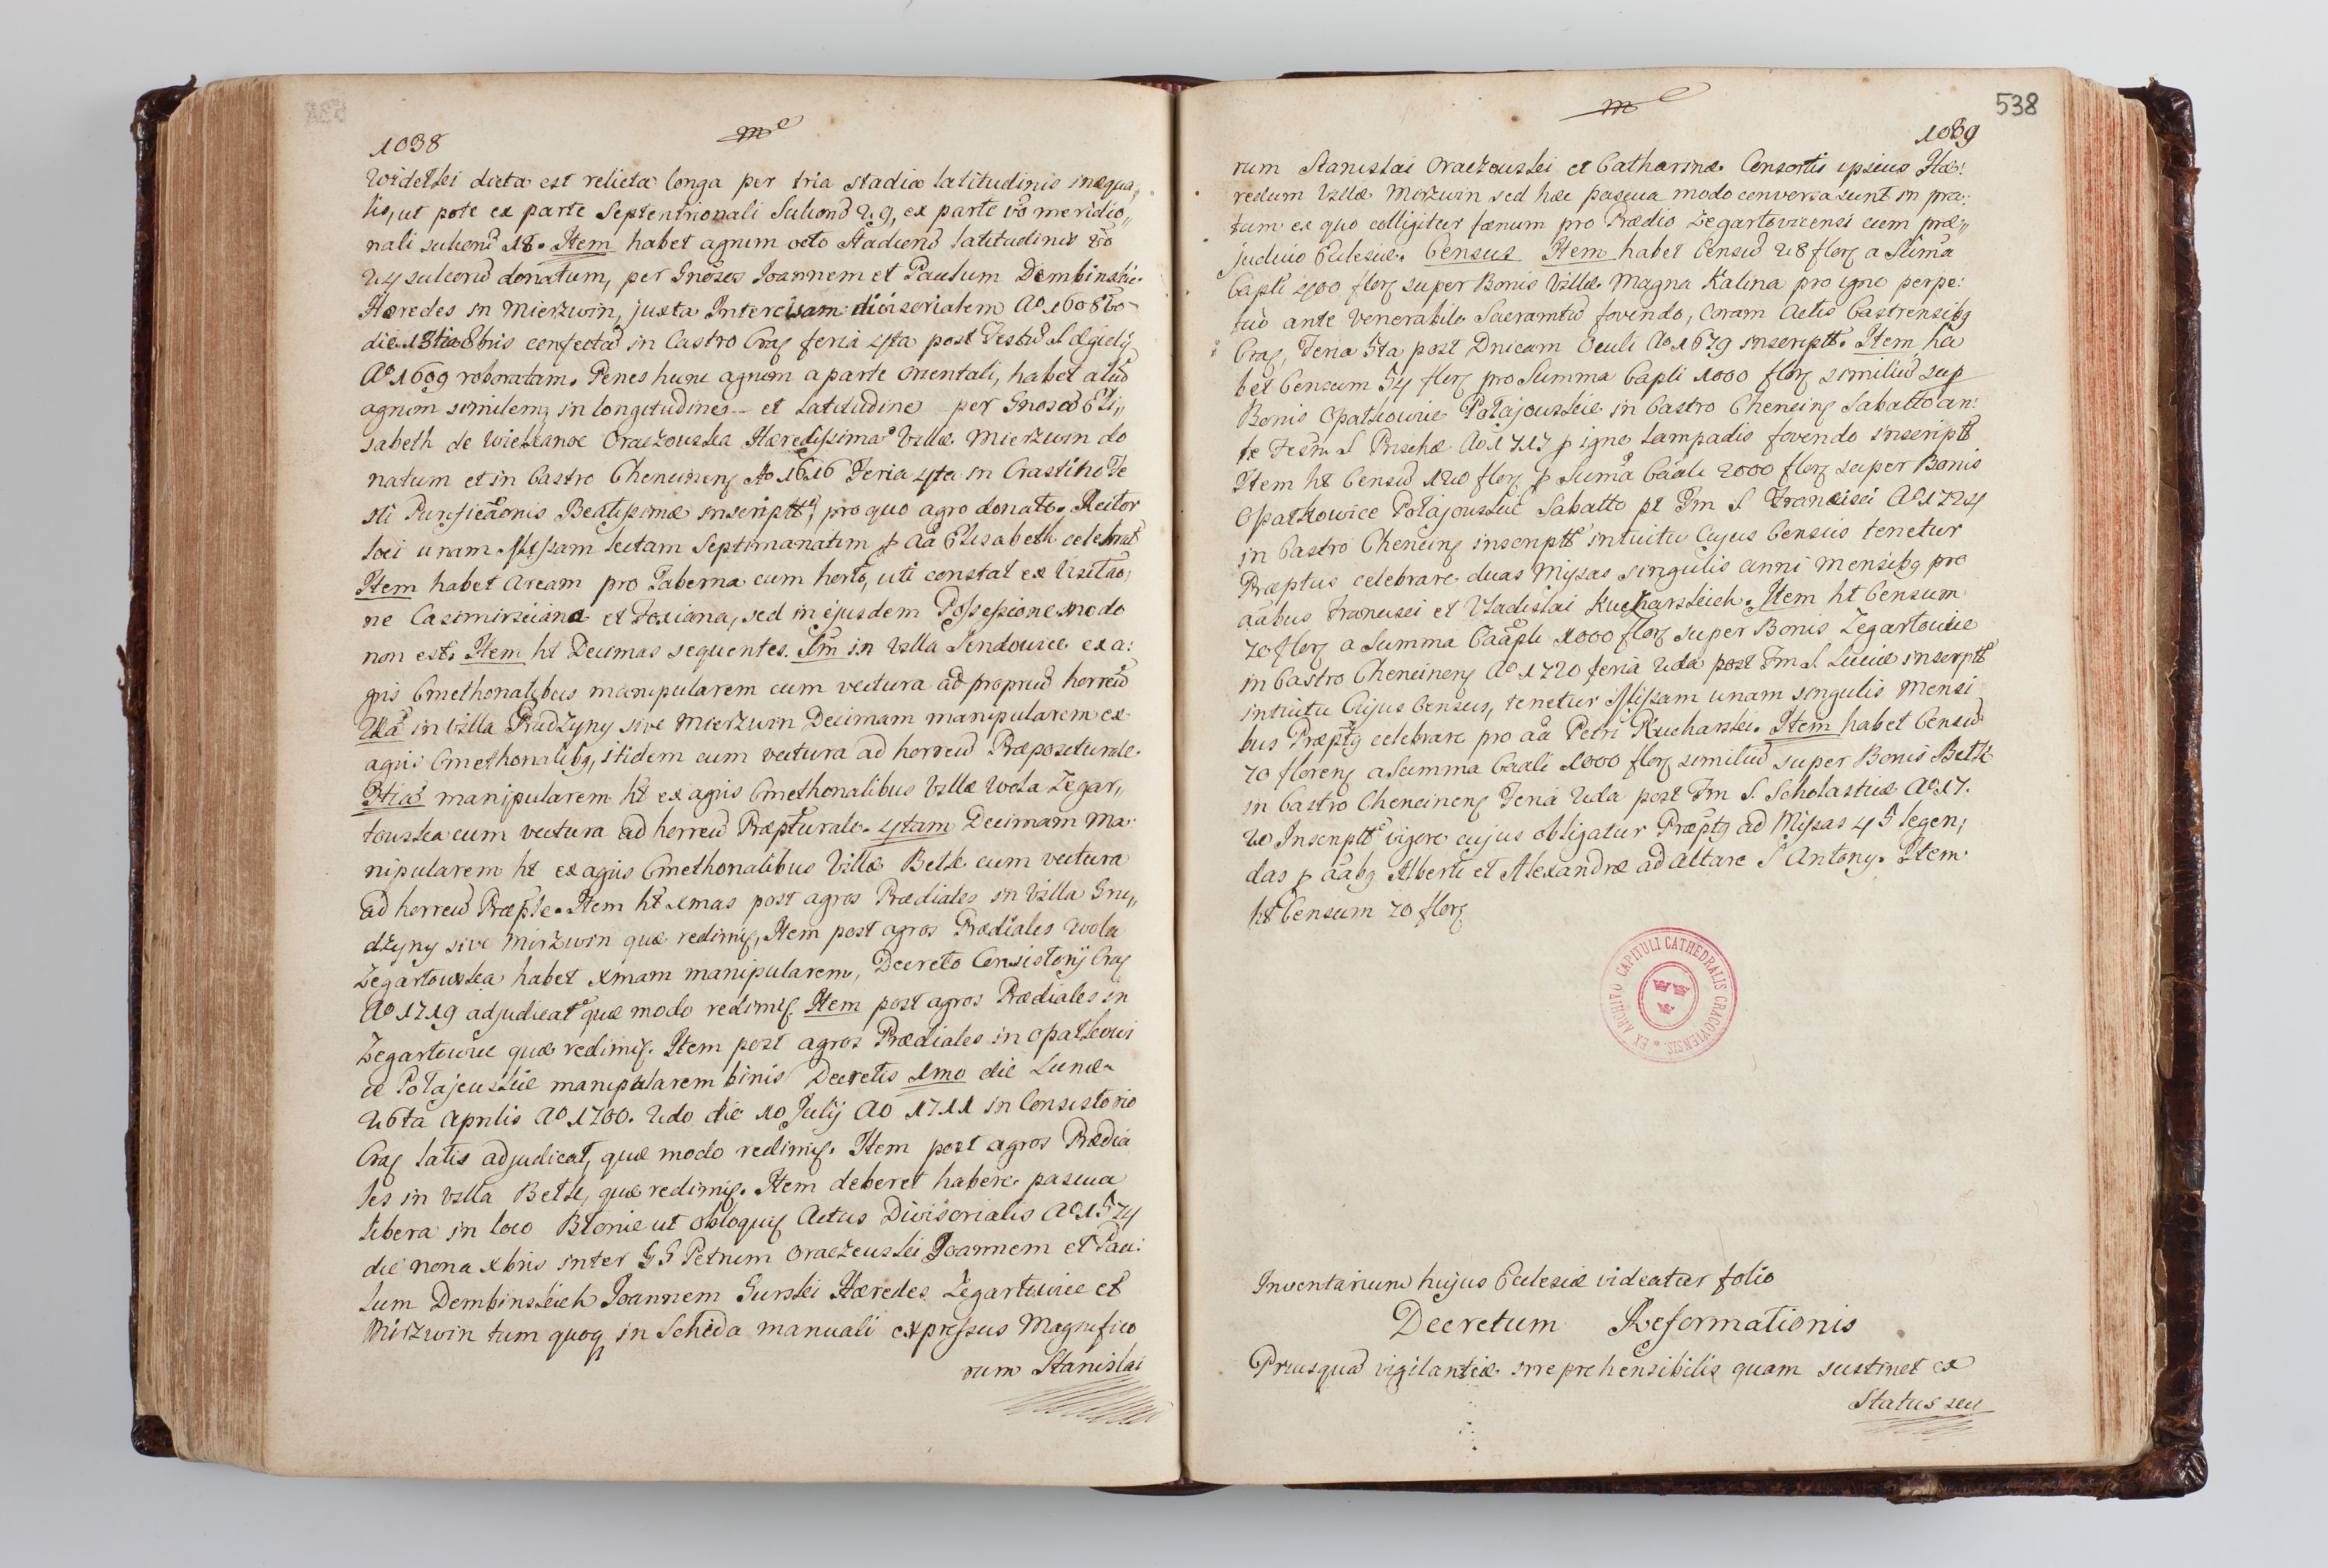 1038
Widelski dicta est relicta longa per tria stadia latitudinis inæqua„
lis, ut pote ex parte Septentrionali Sulconũ 29, ex parte võ meridio„
nali sulconũ 18. Item habet agrum octo Stadionũ latitudinis võ
24 sulconũ donatum, per Gnosos Joannem et Paulum Dembinskie
Hæredes in Mierzwin, juxta Intercisam divisorialem Aº 1608vo
die 13tia Xbris confectã in Castro Crac feria 4ta post Festũ S. Ægidij
Aº 1609 roboratam. Penes hunc agrum a parte Orientali, habet aliũ
agrum similem in longitudine et latitudine per Gnosã Eli„
sabeth de Wielkanoc Oraczowska Hæredissima Villæ Mierzwin do
natum et in Castro Chencinen Aº 1616 Feria 4ta in Crastino Fe
sti Purificaõnis Beatissimæ inscriptt, pro quo agro donato, Rector
loci unam Missam lectam Septimanatim p aã Elisabeth celebrat
Item habet Aream pro Taberna cum horto, uti constat ex Visitão,
ne Casimirsciana et Foxiana, sed in ejusdem Possessione modo
non est. Item ht Decimas sequentes. Im in Villa Sendowice ex a:
gris Cmethonalibus manipularem cum vectura ad propriũ horreũ
IIdã in Villa Grudzyny sive Mierzwin Decimam manipularem ex
agris Cmethonalibg, itidem cum vectura ad horreũ Præpositurale.
IIItiã manipularem ht ex agris Cmethonalibus Villæ Wola Zegar„
towska cum vectura ad horreũ Præpturale. 4tam Decimam Ma
nipularem ht ex agris Cmethonalibus Villæ Belk cum vectura
ad horreũ Præple. Item ht Xmas post agros Prædiales in Villa Gru„
dzyny sive Mirzwin quæ redimit, Item post agros Prædiales Wola
Zegartowska habet Xmam manipularem, Decreto Consistorij Crac
Aº 1719 adjudicat quæ modo redimit. Item post agros Prædiales in
Zegartowice quæ redimit. Item post agros Prædiales in Opatkowi
ce Połajewskie manipularem binis Decretis 1mo die Lunæ
26ta Aprilis Aº 1700. 2do die 10 Julij Aº 1711 in Consistorio
Crac latis adjudicat, quæ modo redimit. Item post agros Prædia
les in Villa Belk, quæ redimit. Item deberet habere pascua
libera in loco Błonie ut obloquit Actus Divisorialis Aº 1574
die nona Xbris inter GG Petrum Oraczewski Joannem et Pau:
lum Dembinskich Joannem Gurski Hæredes Zegartowice et
Mirzwin tum quoq in Scheda manuali expressus Magnifico
rum Stanislai
538
1039
rum Stanislai Oraczowski et Catharinæ Consortis ipsius Hæ:
redum Villæ Mirzwin sed hæc pascua modo conversa sunt in pra:
tum ex quo colligitur fænum pro Prædio Zegartovicensi cum præ„
judicio Ecclesiæ. Census Item habet Censũ 28 flor a Sũma
Capli 400 flor super Bonis Villæ Magna Kalina pro igne perpe:
tuo ante Venerabile Sacramtũ fovendo, coram Actis Castrensibg
Crac, Feria 5ta post Dnicam Oculi Aº 1679 inscriptt. Item ha
bet Censum 54 flor pro Summa Capli 1000 flor similiũ sup
Bonis Opatkowice Połajowskie in Castro Chencinẽ Sabatto an:
te Festm S Priscæ Aº 1717 p igne Lampadis fovendo inscriptt
Item ht Censũ 120 flor p Sũma Caali 2000 flor super Bonis
Opatkowice Połajowskie Sabatto pt Fm S Francisci Aº 1724
in Castro Chencinẽ inscriptt intuitu cujus Census tenetur
Præptus celebrare duas Missas singulis anni Mensibg pro
aabus Francisci et Vladislai Kucharskich. Item ht Censum
70 flor a Summa Caapli 1000 flor super Bonis Zegartowice
in Castro Chencinen Aº 1720 feria 2da post Fm S. Luciæ inscrptt
intuitu Cujus Census, tenetur Missam unam singulis Mensi
bus Præptg celebrare pro aã Petri Kucharski. Item habet Censũ
70 floren a Summa Caali 1000 flor similiũ super Bonis Belk
in Castro Chencinen Feria 2da post Fm S. Scholasticæ Aº 17.
20 Inscriptt vigore cujus obligatur Præptg ad Missas 45 legen:
das p aabg Alberti et Alexandræ ad Altare S Antony. Item
ht Censum 70 flor
EX ARCHIVO CAPITULI CATHEDRALIS CRACOVIENSIS
Inventarium hujus Ecclesiæ videatur folio
Decretum Reformationis
Priusquã vigilantiæ irreprehensibilis quam sustinet ex
Status seu